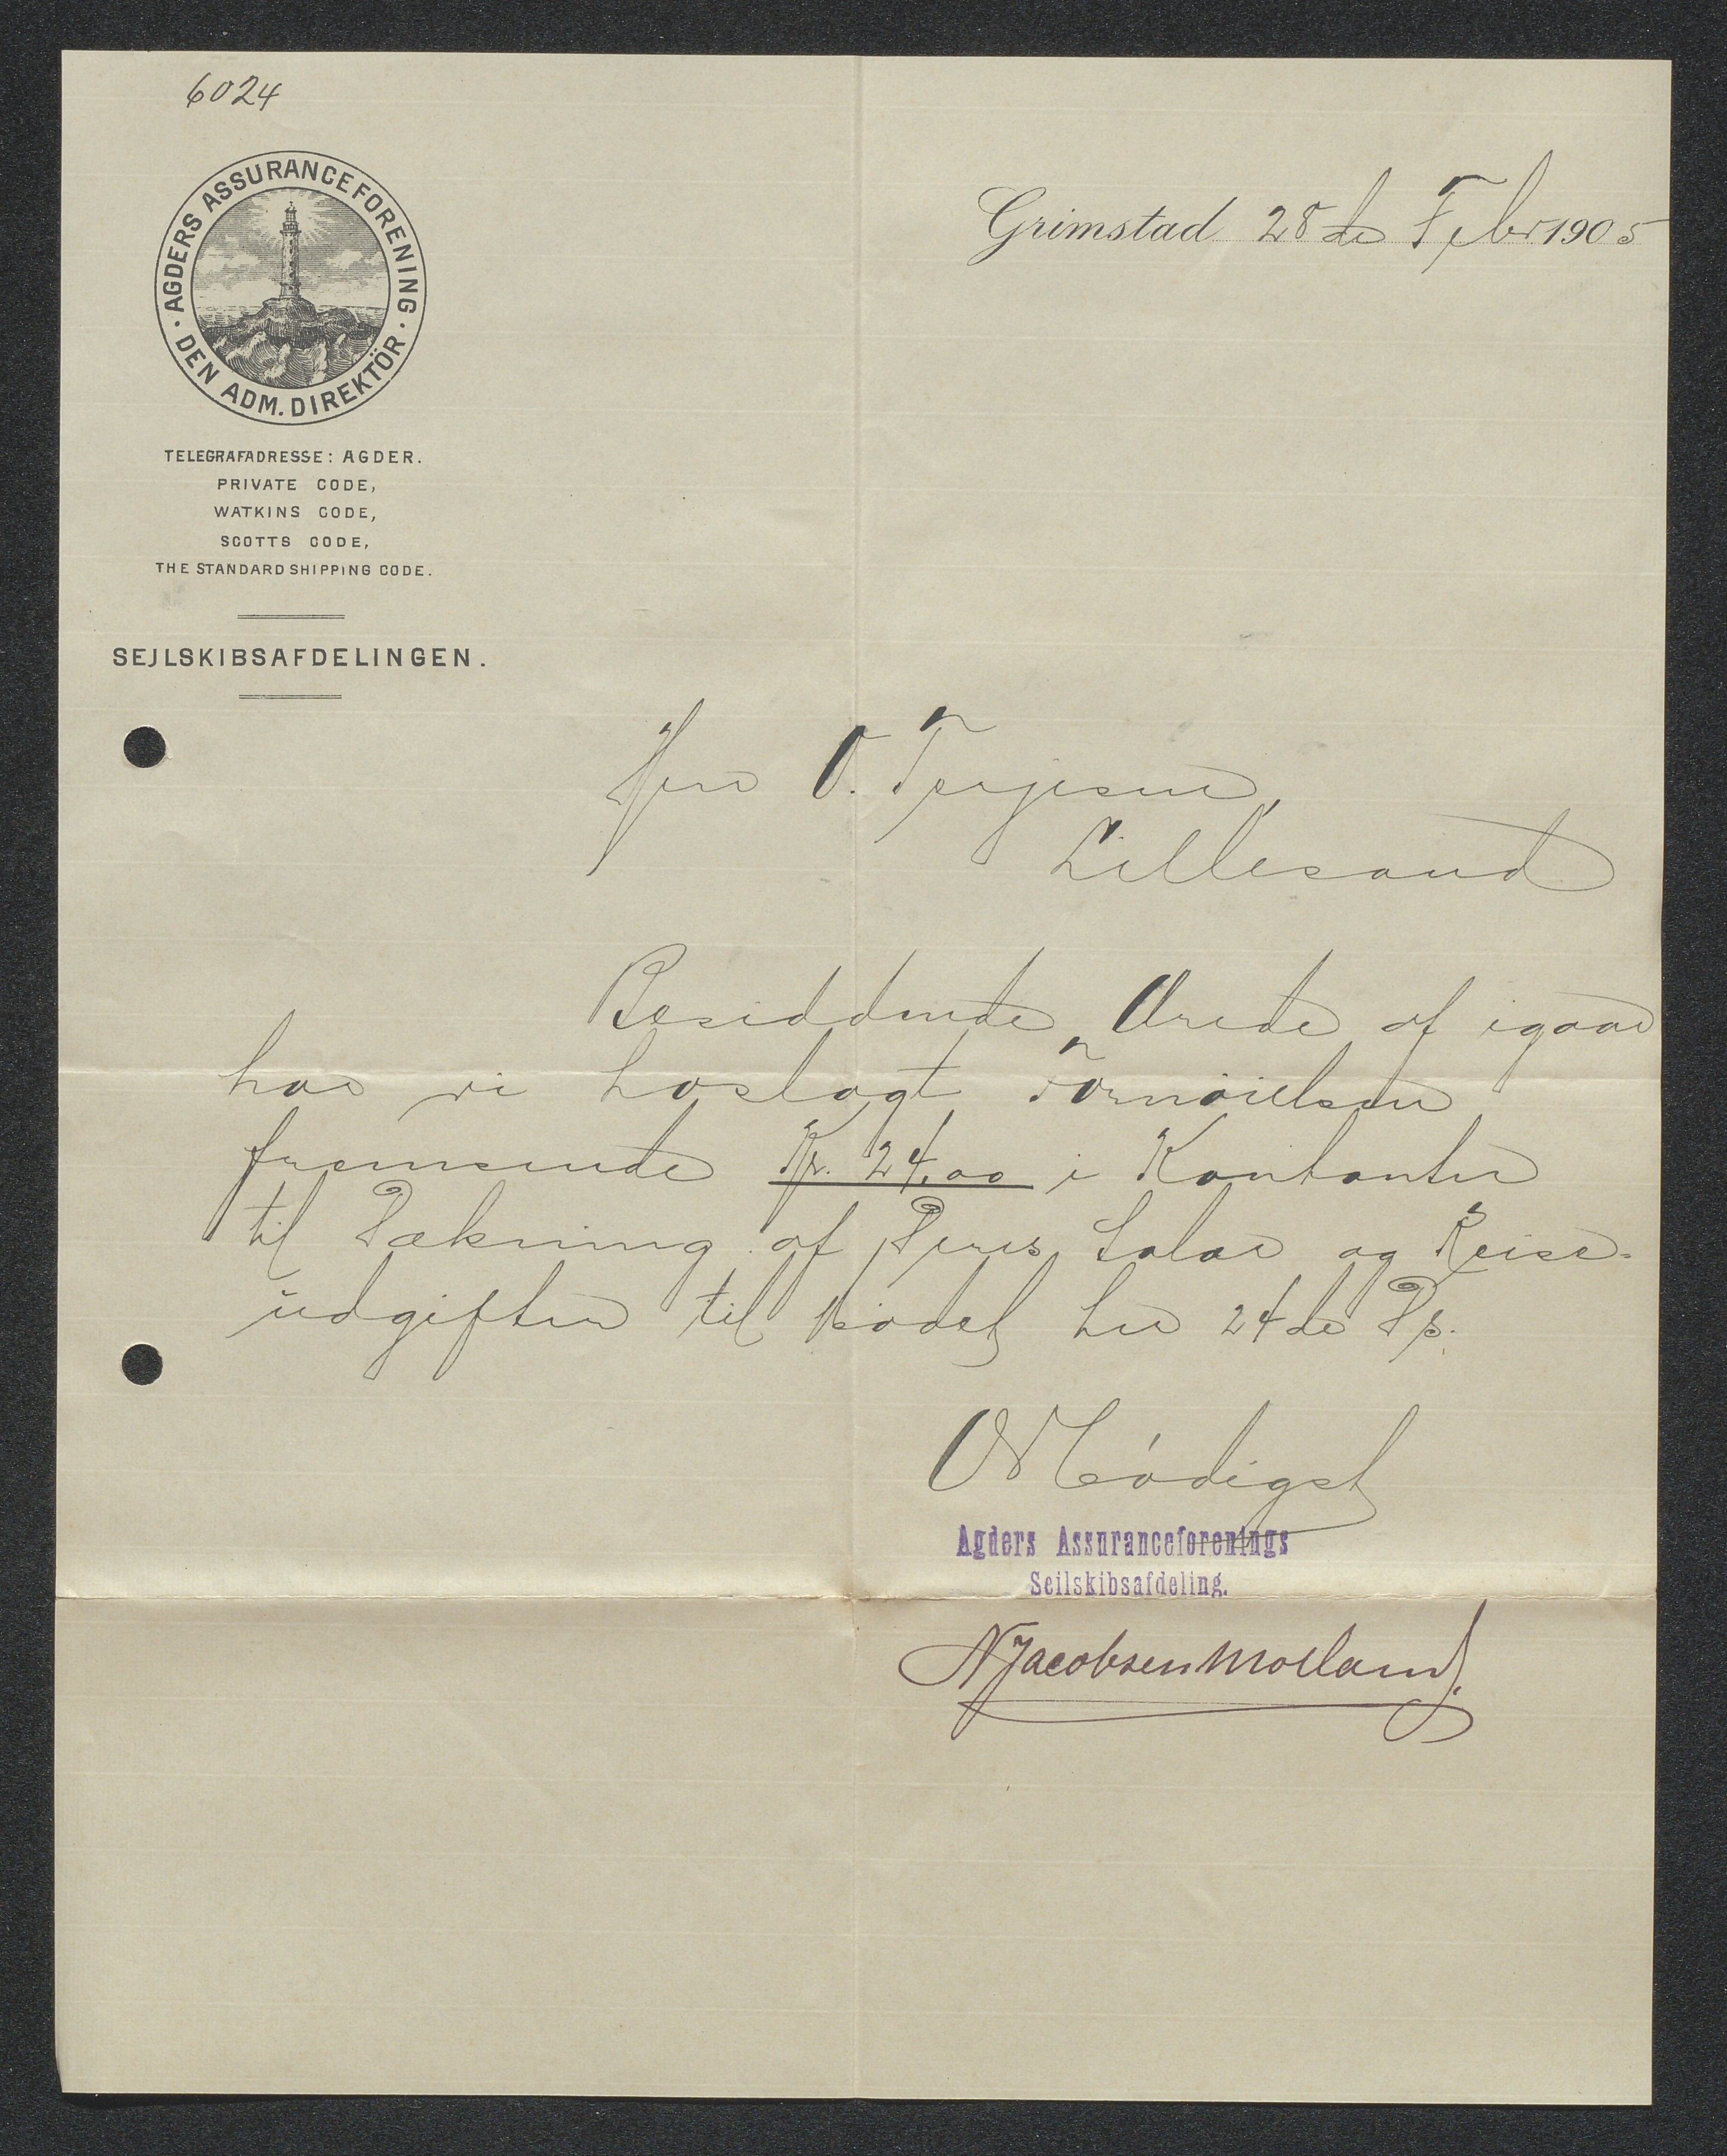 6024
AGDERS ASSURANCEFORENING
· DEN ADM. DIREKTÖR ·
TELEGRAFADRESSE: AGDER.
PRIVATE CODE,
WATKINS CODE,
SCOTTS CODE,
THE STANDARD SHIPPING CODE.
SEJLSKIBSAFDELINGEN.
Grimstad 28de Febr 1905
Herr O. Terjesen,
Lillesand
Besiddende Ærede af igaar
har vi hoslagt Fornöielsen
fremsende Kr. 24,00 i Kontanter
til Dækning af Deres Salær og Reise-
udgifter til Mödet her 24de Ds.
Ærbödigst
Agders Assuranceforenings
Seilskibsafdeling.
N Jacobsen Molland.